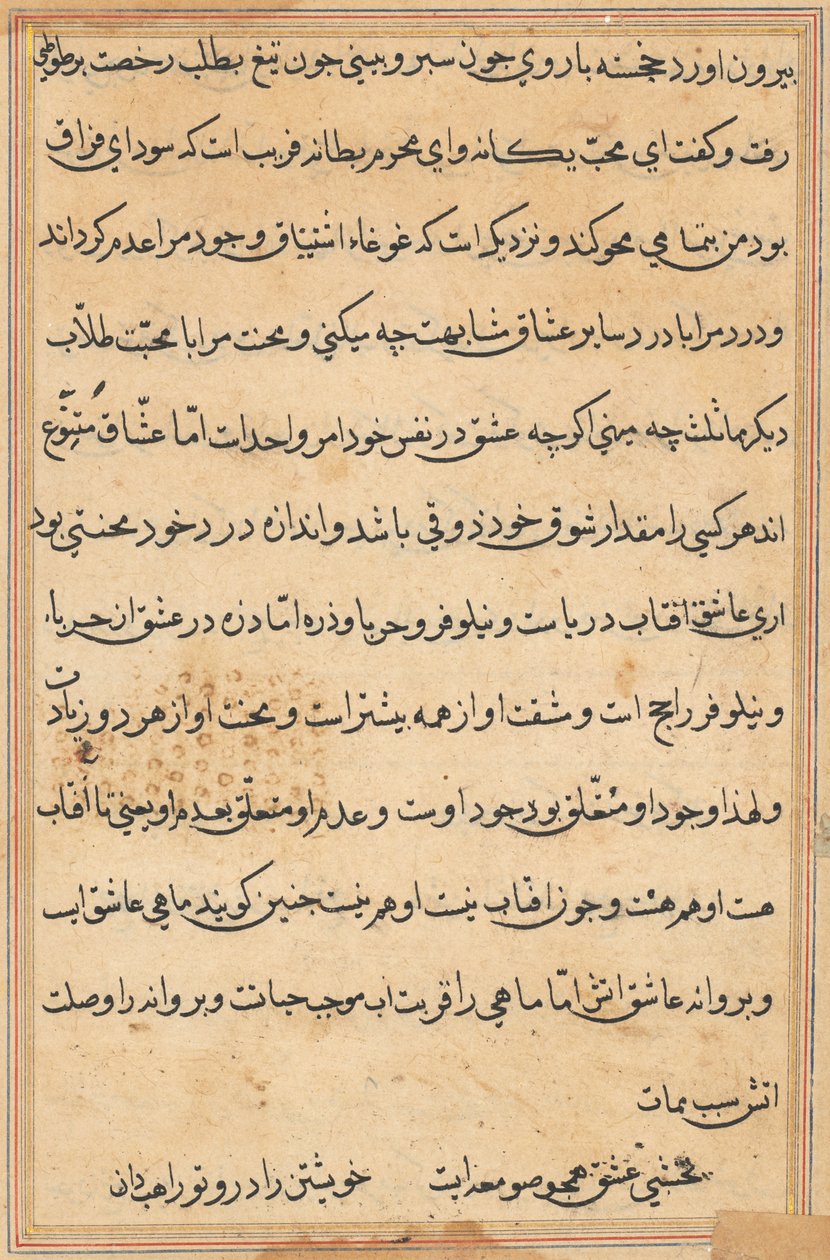 بیرون اورد خجسته باروي جون سبر و بیني جون تیغ بطلب رخصت بر طوطي
رفت و کفت اي محبّ یکانه واي محرم بطانه قریب است که سوداي فراق
بود من بتمامي محو کند و نزدیک است که غوغاء اشتیاق وجود مرا عدم کرداند
و درد مرا با درد سایر عشاق مشابهت چه میکني و محنت مرا با محبّت طلاّب
دیکر مماثلث چه میني اکر چه عشق در نفس خود امر واحد است امّا عشّاق متنوّع
اند هر کسي را مقدار شوق خود ذوقي باشد و اندازه درد خود محنتي بود
اري عاشق افتاب دریاست و نیلوفر و حربا و ذره امّا ذره در عشق از حرباء
و نیلوفر راجح است و مشقت او از همه بیشتر است و محنت او از هر دو زیادت
ولهذا وجود او متعّلق بوجود اوست و عدم او متعلّق بعدم او یعني تا افتاب
هست او هم هست و جون افتاب نیست او هم نیست جنین کویند ماهي عاشق ابست
و بروانه عاشق اتش امّا ماهي را قربت اب موجب حیاتت و بروانه را وصلت
اتش سبب ممات
نخشبي عشق همجو صومعه ایت خویشتن را درو تو راهب دان